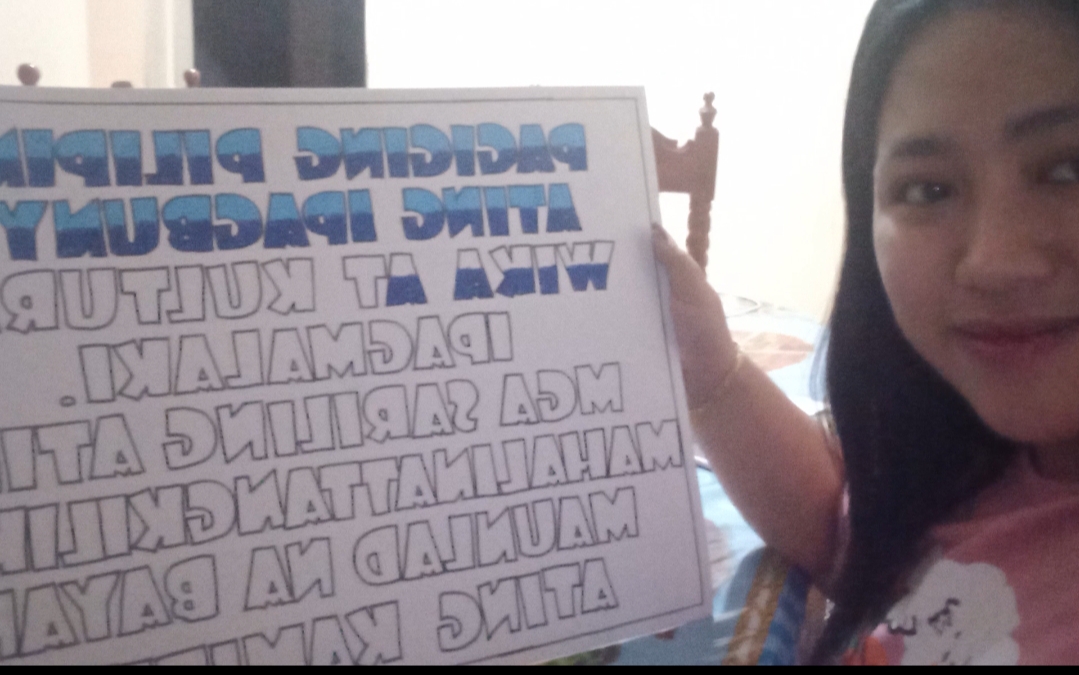 PAGIGING PILIPIN
ATING IPAGBUNY
WIKA AT KULTUR
IPAGMALAKI.
MGA SARILING ATI
MAHALINATTANGKILI
MAUNLAD NA BAYA
ATING